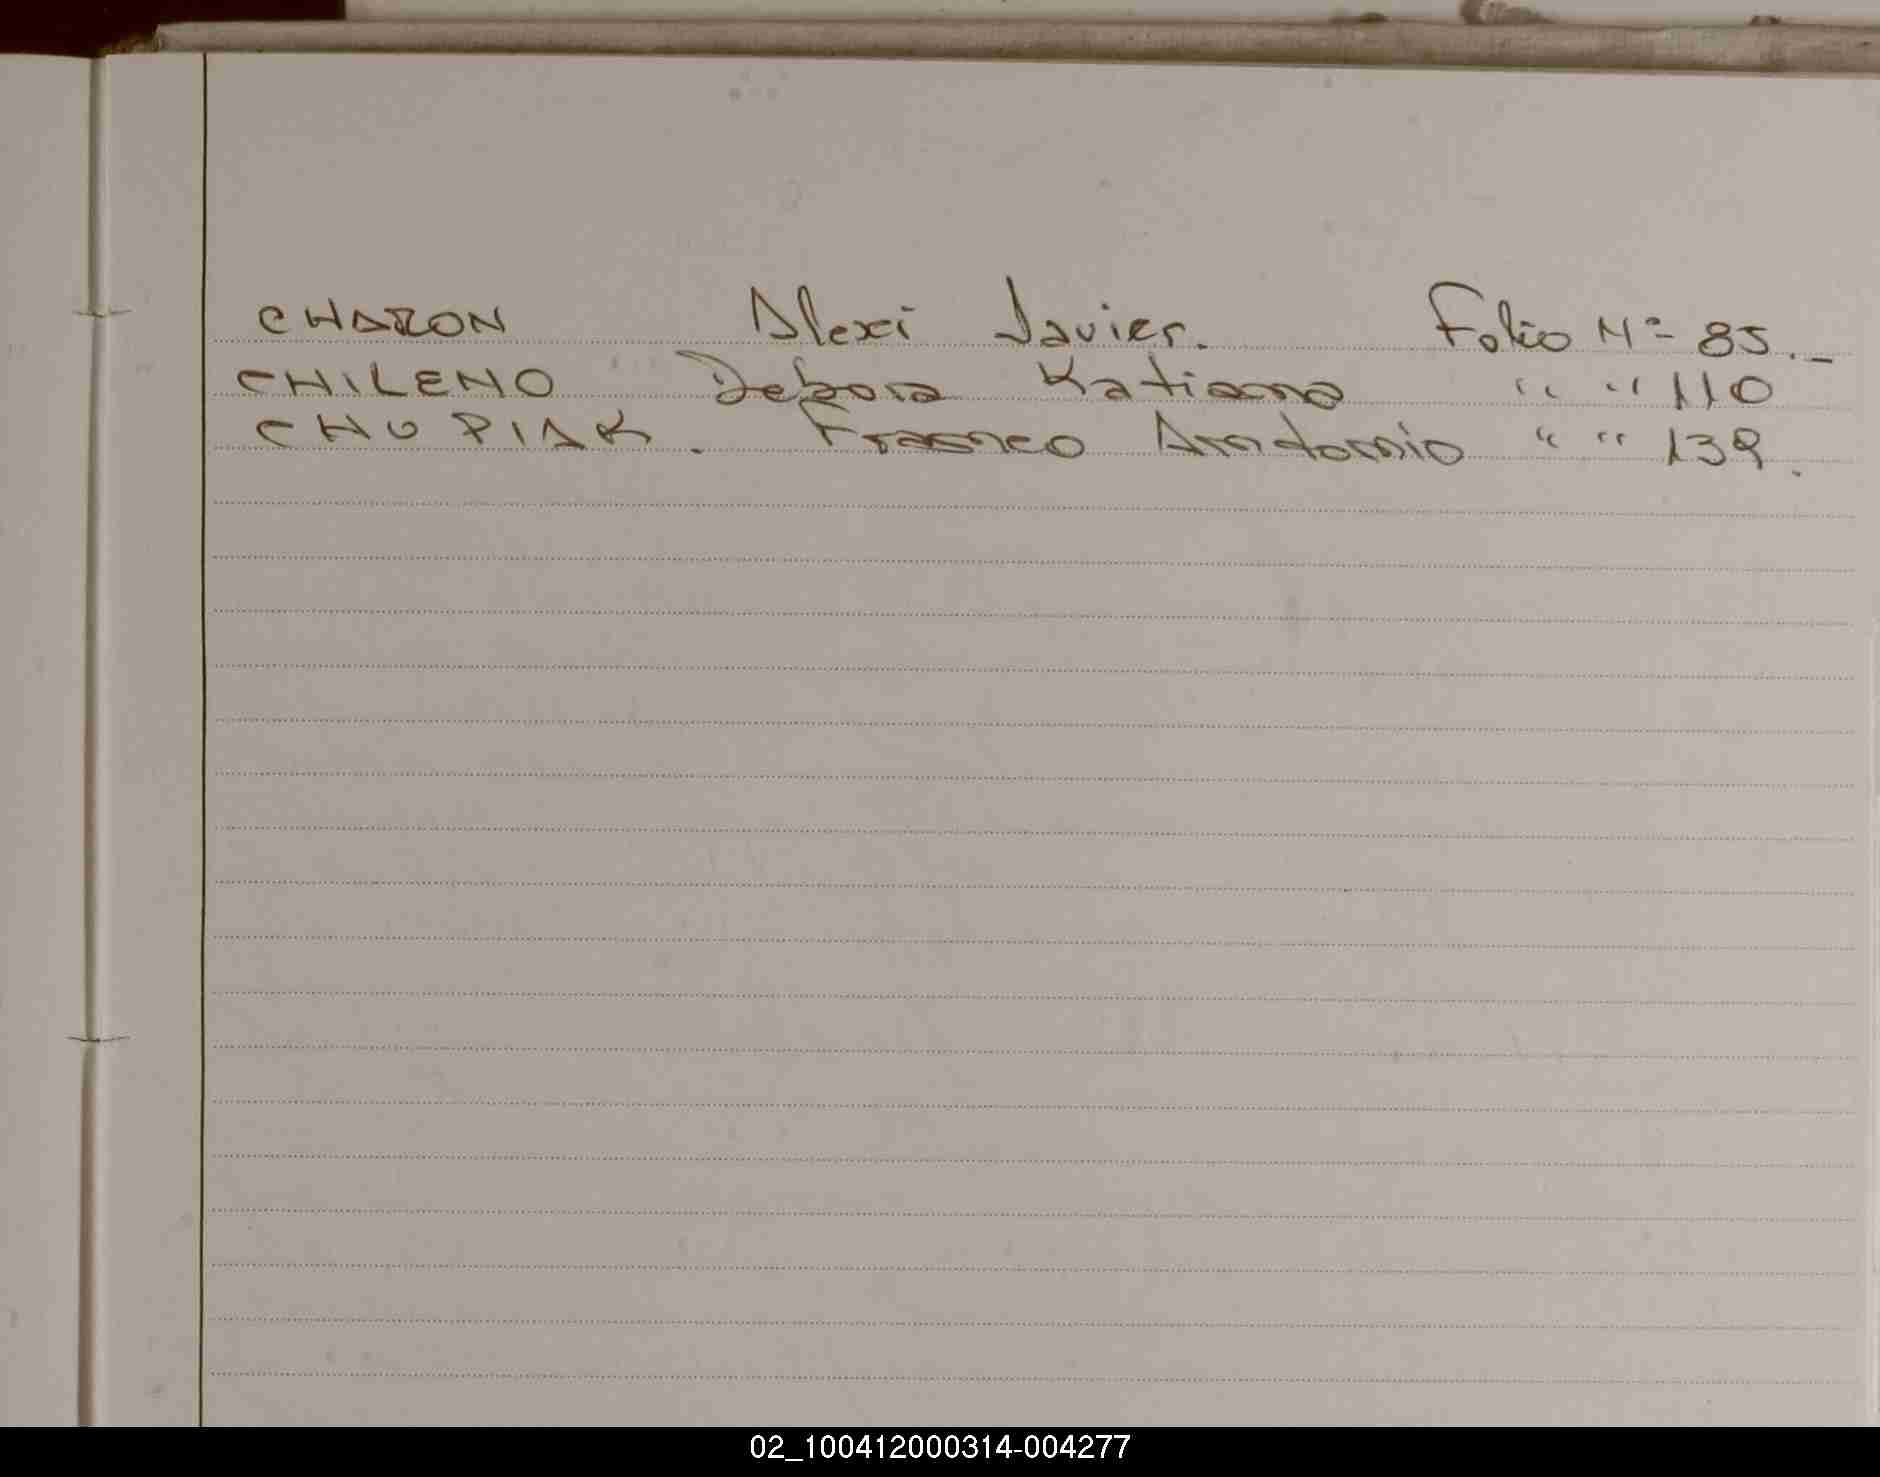 CHARON Alexi Javier. Folio Nº 85.-
CHILENO Debora Katiana " " 110
CHUPIAK. Franco Antonio " " 139.
02_100412000314-004277